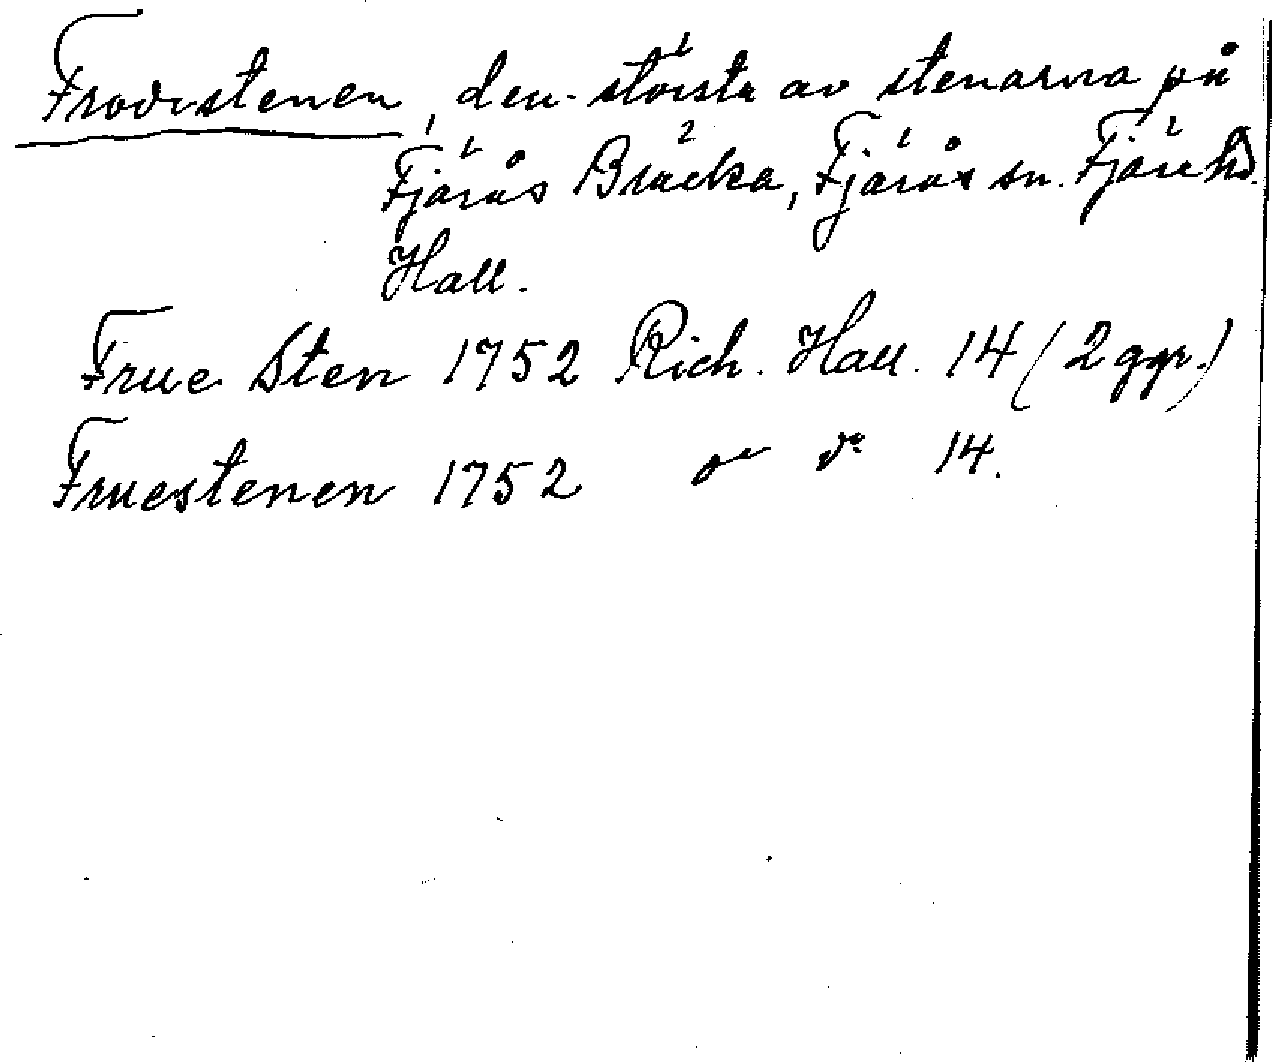 Frodestenen, den största av stenarna på
Fjärås Bräcka, Fjärås sn. Fjäre hd.
Hall.
Frue Sten 1752 Rich. Hall. 14 (2 ggr.)
Fruestenen 1752 do do 14.